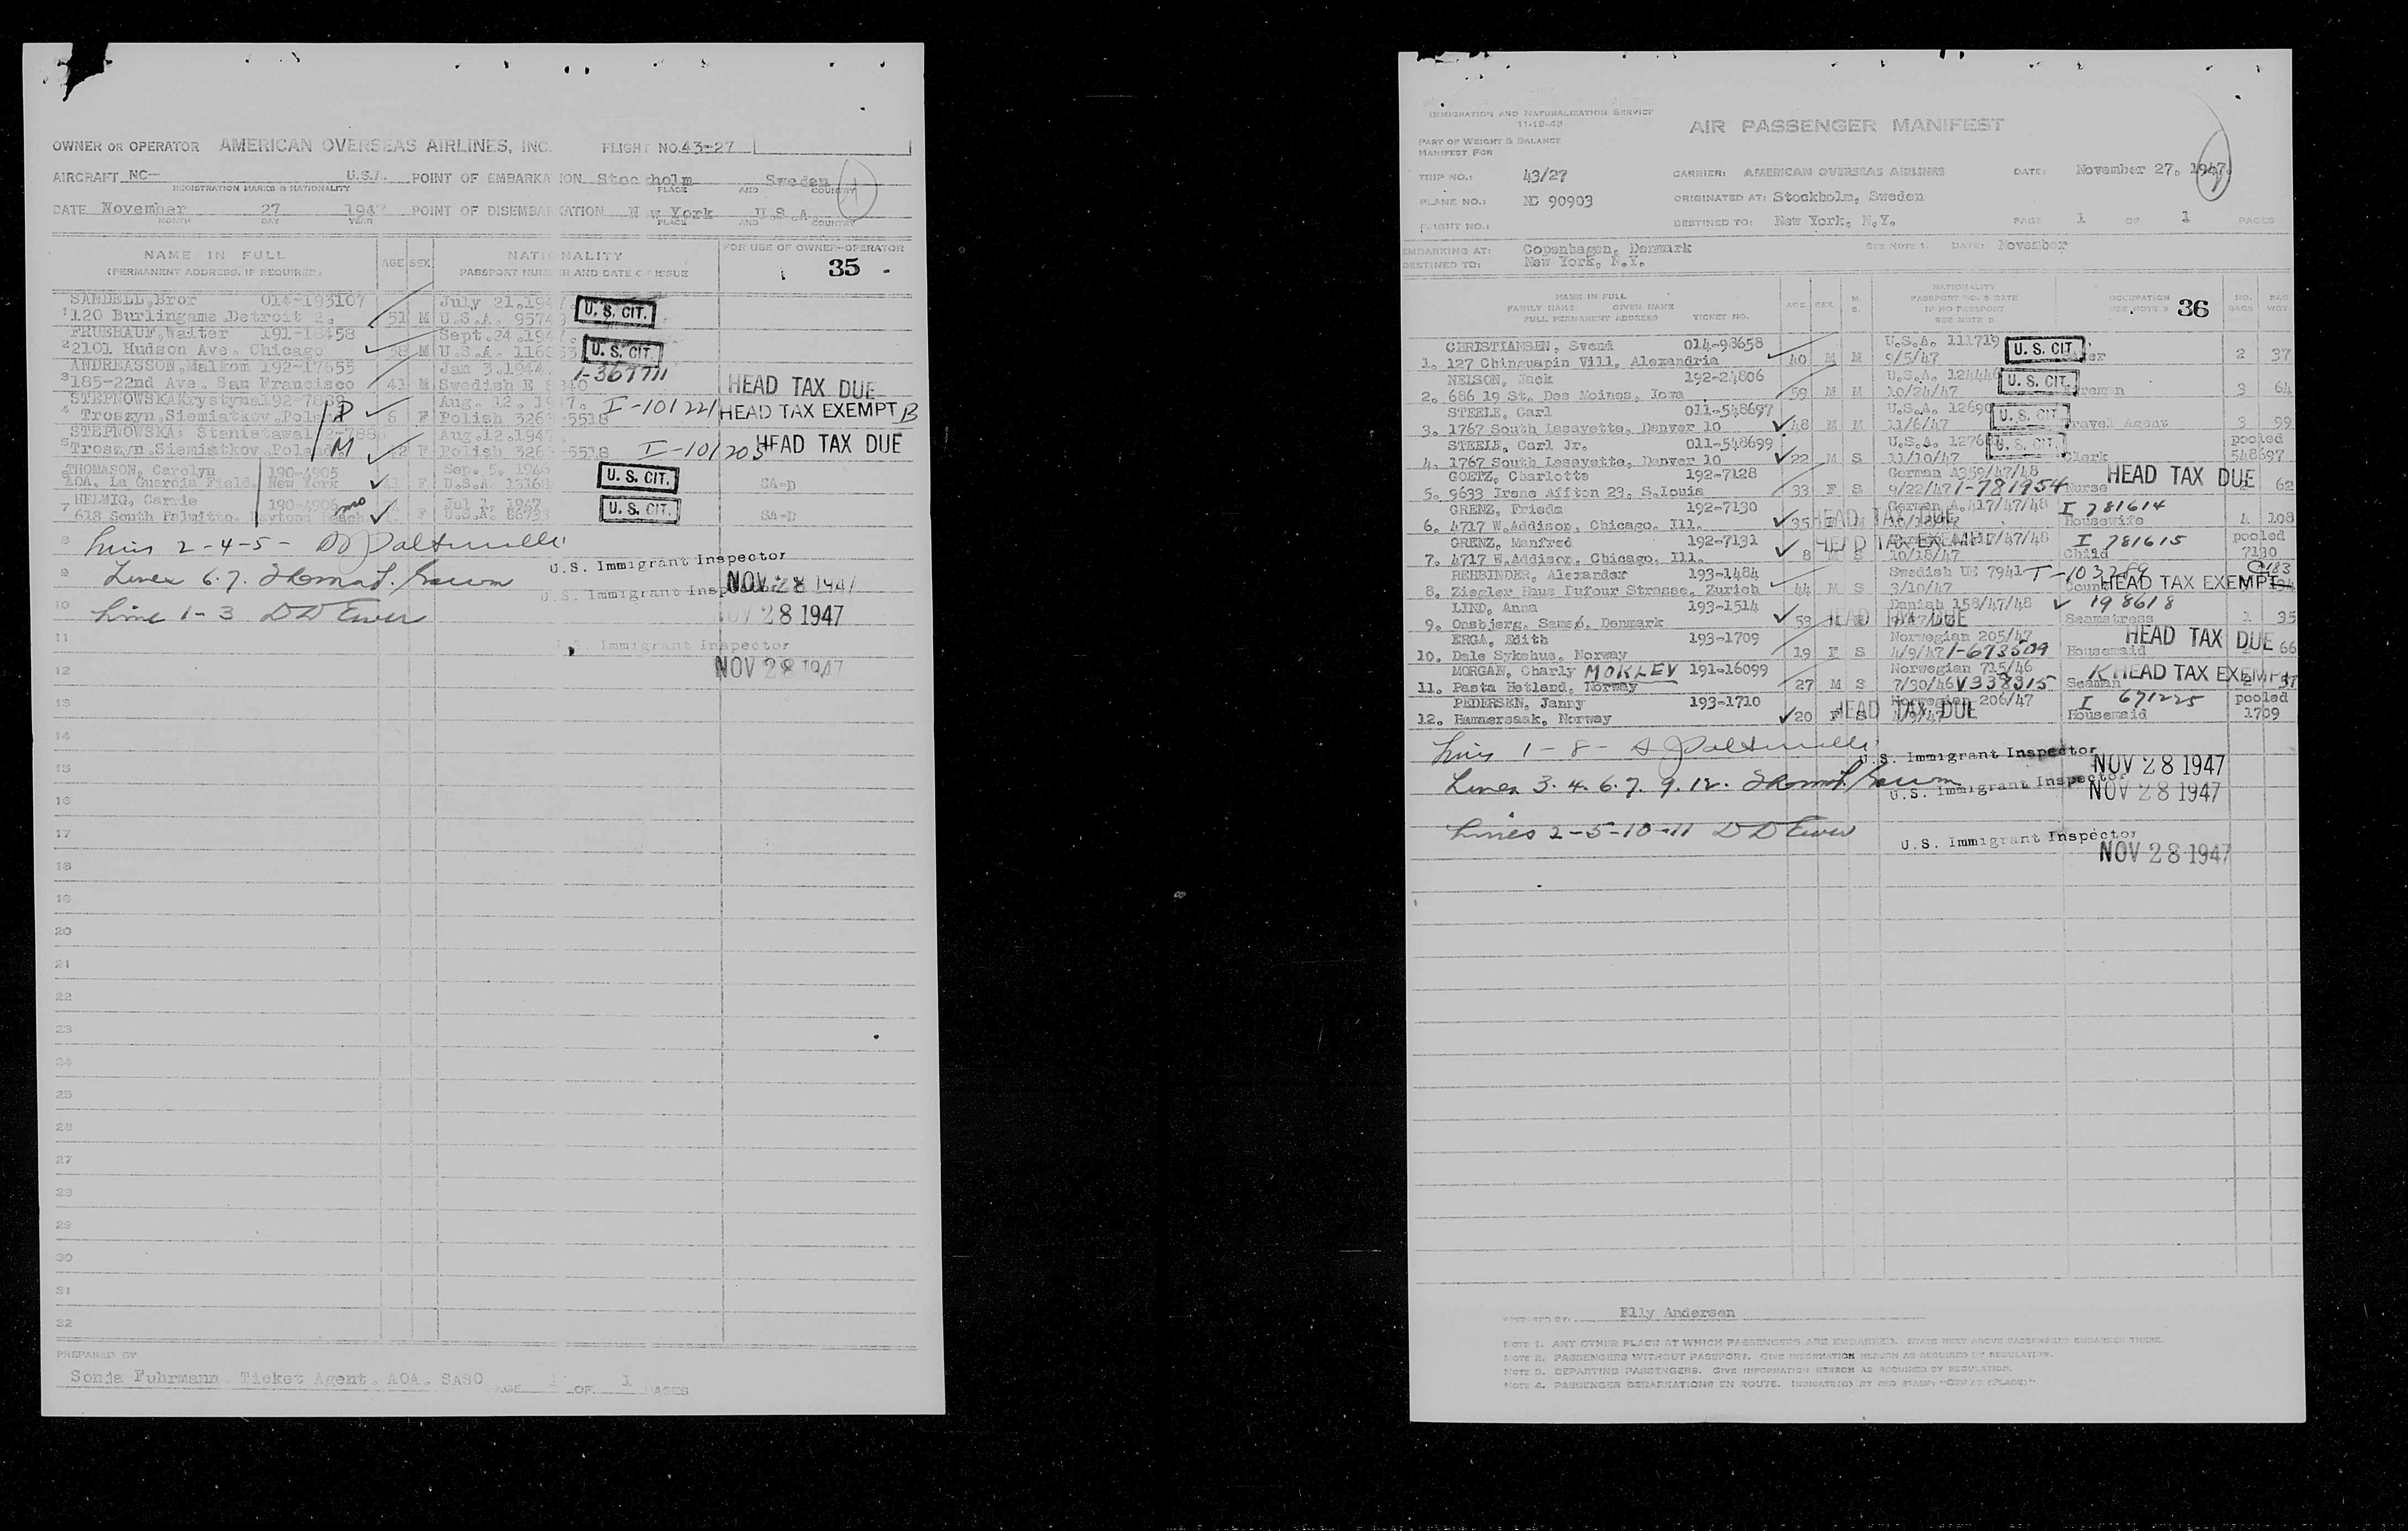 OWNER OR OPERATOR AMERICAN OVERSEAS AIRLINES, INC. FLIGHT NO. 43-27
AIRCRAFT NC— U.S.A. POINT OF EMBARKATION Stockholm Sweden
REGISTRATION MARKS & NATIONALITY PLACE AND COUNTRY
DATE November 27 1947 POINT OF DISEMBARKATION New York U.S.A.
MONTH DAY YEAR PLACE AND COUNTRY
NAME IN FULL AGE SEX NATIONALITY FOR USE OF OWNER-OPERATOR
(PERMANENT ADDRESS, IF REQUIRED) PASSPORT NUMBER AND DATE OF ISSUE 35
SANDELL, Bror 014-193107 July 21.1947.
1 120 Burlingame Detroit 2. 51 M U.S.A. 9574 U. S. CIT.
FRUEHAUF, Walter 191-18458 Sept.24.194
2 2101 Hudson Ave. Chicago 58 M U.S.A. 116 U. S. CIT.
ANDREASSON, Malkom 192-17655 Jan 3.1944. 1-367711
3 185-22nd Ave. San Francisco 41 M Swedish E HEAD TAX DUE
STEPNOWSKA Krystyna 192-7889 Aug. 12. 1947. I-101221 HEAD TAX EXEMPT B
4 Troszyn, Siemiatkov, Poland D 6 F Polish 326 -5518
STEPNOWSKA, Stanistawa Aug.12.1947
5 Troszyn Siemistkov Poland M F Polish 326 -5518 I-101205 HEAD TAX DUE
THOMASON, Carolyn 190-4905 Sep. 5. 1946
AOA, La Guardia Field. New York 41 F U.S.A. 1316 U. S. CIT. SA-D
HELMIG, Carrie 190-4906 Jul 1, 1947
7 618 South Palmitto. Daytona Beach F U.S.A. U. S. CIT. SA-D
8 Lines 2-4-5-
U.S. Immigrant Inspector
9 Lines 6.7. NOV 28 1947
U.S. Immigrant Inspector
10 Line 1-3 D D Ewer NOV 28 1947
11 U.S. Immigrant Inspector
12 NOV 28 1947
13
14
15
16
17
18
19
20
21
22
23
24
25
26
27
28
29
30
31
32
PREPARED BY
Sonja Fuhrmann Ticket Agent. AOA. SASO PAGE OF 1 PAGES
IMMIGRATION AND NATURALIZATION SERVICE
11-18-46
AIR PASSENGER MANIFEST
PART OF WEIGHT & BALANCE
MANIFEST FOR
TRIP NO.: 43/27 CARRIER: AMERICAN OVERSEAS AIRLINES DATE: November 27. 1947.
PLANE NO.: NC 90903 ORIGINATED AT: Stockholm, Sweden
FLIGHT NO.: DESTINED TO: New York, N.Y. PAGE 1 OF 1 PAGES
EMBARKING AT: Copenhagen, Denmark SEE NOTE 1. DATE: November
DESTINED TO: New York, N.Y.
NAME IN FULL NATIONALITY
FAMILY NAME GIVEN NAME AGE SEX M. S. PASSPORT NO. & DATE OCCUPATION NO. BAGS BAG WGT.
FULL PERMANENT ADDRESS TICKET NO. IF NO PASSPORT SEE NOTE 2 36
CHRISTIANSEN, Svend 014-98658 U.S.A. 111719
1. 127 Chinquapin Vill, Alexandria 40 M M 9/5/47 U. S. CIT. 2 37
NELSON, Jack 192-24806 U.S.A. 124446
2. 686 19 St. Des Moines, Iowa 59 M M 10/24/47 U. S. CIT. 3 64
STEELE, Carl 011-548697 U.S.A. 12690
3. 1767 South Lasayette, Denver 10 48 M M 11/6/47 U. S. CIT. Travel Agent 3 99
STEELE, Carl Jr. 011-548699 U.S.A. 1276 U. S. CIT. pooled
4. 1767 South Lasayette, Denver 10 22 M S 11/10/47 Clerk 548697
GOETZ, Charlotte 192-7128 German A359/47/48 HEAD TAX DUE
5. 9633 Irene Affton 23, S.Louis 33 F S 9/22/47 1-781954 Nurse 62
GRENZ, Frieda 192-7130 German A.417/47/48 I 781614
6. 4717 W.Addison, Chicago, Ill. 35 HEAD TAX DUE Housewife 4 108
GRENZ, Manfred 192-7131 HEAD TAX EXEMPT /47/48 I 781615 pooled
7. 4717 W.Addison, Chicago, Ill. 8 M S 10/18/47 Child 7130
REHBINDER, Alexander 193-1484 Swedish UE 7941 I-103289
8. Ziegler Haus Dufour Strasse, Zurich 44 M S 3/10/47 HEAD TAX EXEMPT
LIND, Anna 193-1514 Danish 158/47/48 198618
9. Onsbjerg, Samsö, Denmark 53 HEAD TAX DUE Seamstress 1 35
ERGA, Edith 193-1709 Norwegian 205/47 HEAD TAX DUE
10. Dale Sykehus, Norway 19 F S 4/9/47 1-673509 Housemaid 66
MORGAN, Charly MORLEV 191-16099 Norwegian 715/46 K HEAD TAX EXEMPT
11. Pasta Hetland, Norway 27 M S 7/30/46 V338315 Seaman 2 37
PEDERSEN, Janny 193-1710 Norwegian 206/47 I 671225 pooled
12. Hammersaak, Norway 20 F S HEAD TAX DUE Housemaid 1709
Lines 1-8-
U.S. Immigrant Inspector NOV 28 1947
Lines 3. 4. 6. 7. 9. 12.
U.S. Immigrant Inspector NOV 28 1947
Lines 2-5-10-11 D D Ewer
U.S. Immigrant Inspector NOV 28 1947
PREPARED BY: Elly Andersen
NOTE 1. ANY OTHER PLACE AT WHICH PASSENGERS ARE EMBARKED. STATE NEXT ABOVE PASSENGERS EMBARKED THERE.
NOTE 2. PASSENGERS WITHOUT PASSPORT. GIVE INFORMATION HEREON AS REQUIRED BY REGULATION.
NOTE 3. DEPARTING PASSENGERS. GIVE INFORMATION HEREON AS REQUIRED BY REGULATION.
NOTE 4. PASSENGER DEBARKATIONS EN ROUTE. INDICATE(D) BY RED STAMP: "OFF AT (PLACE)".